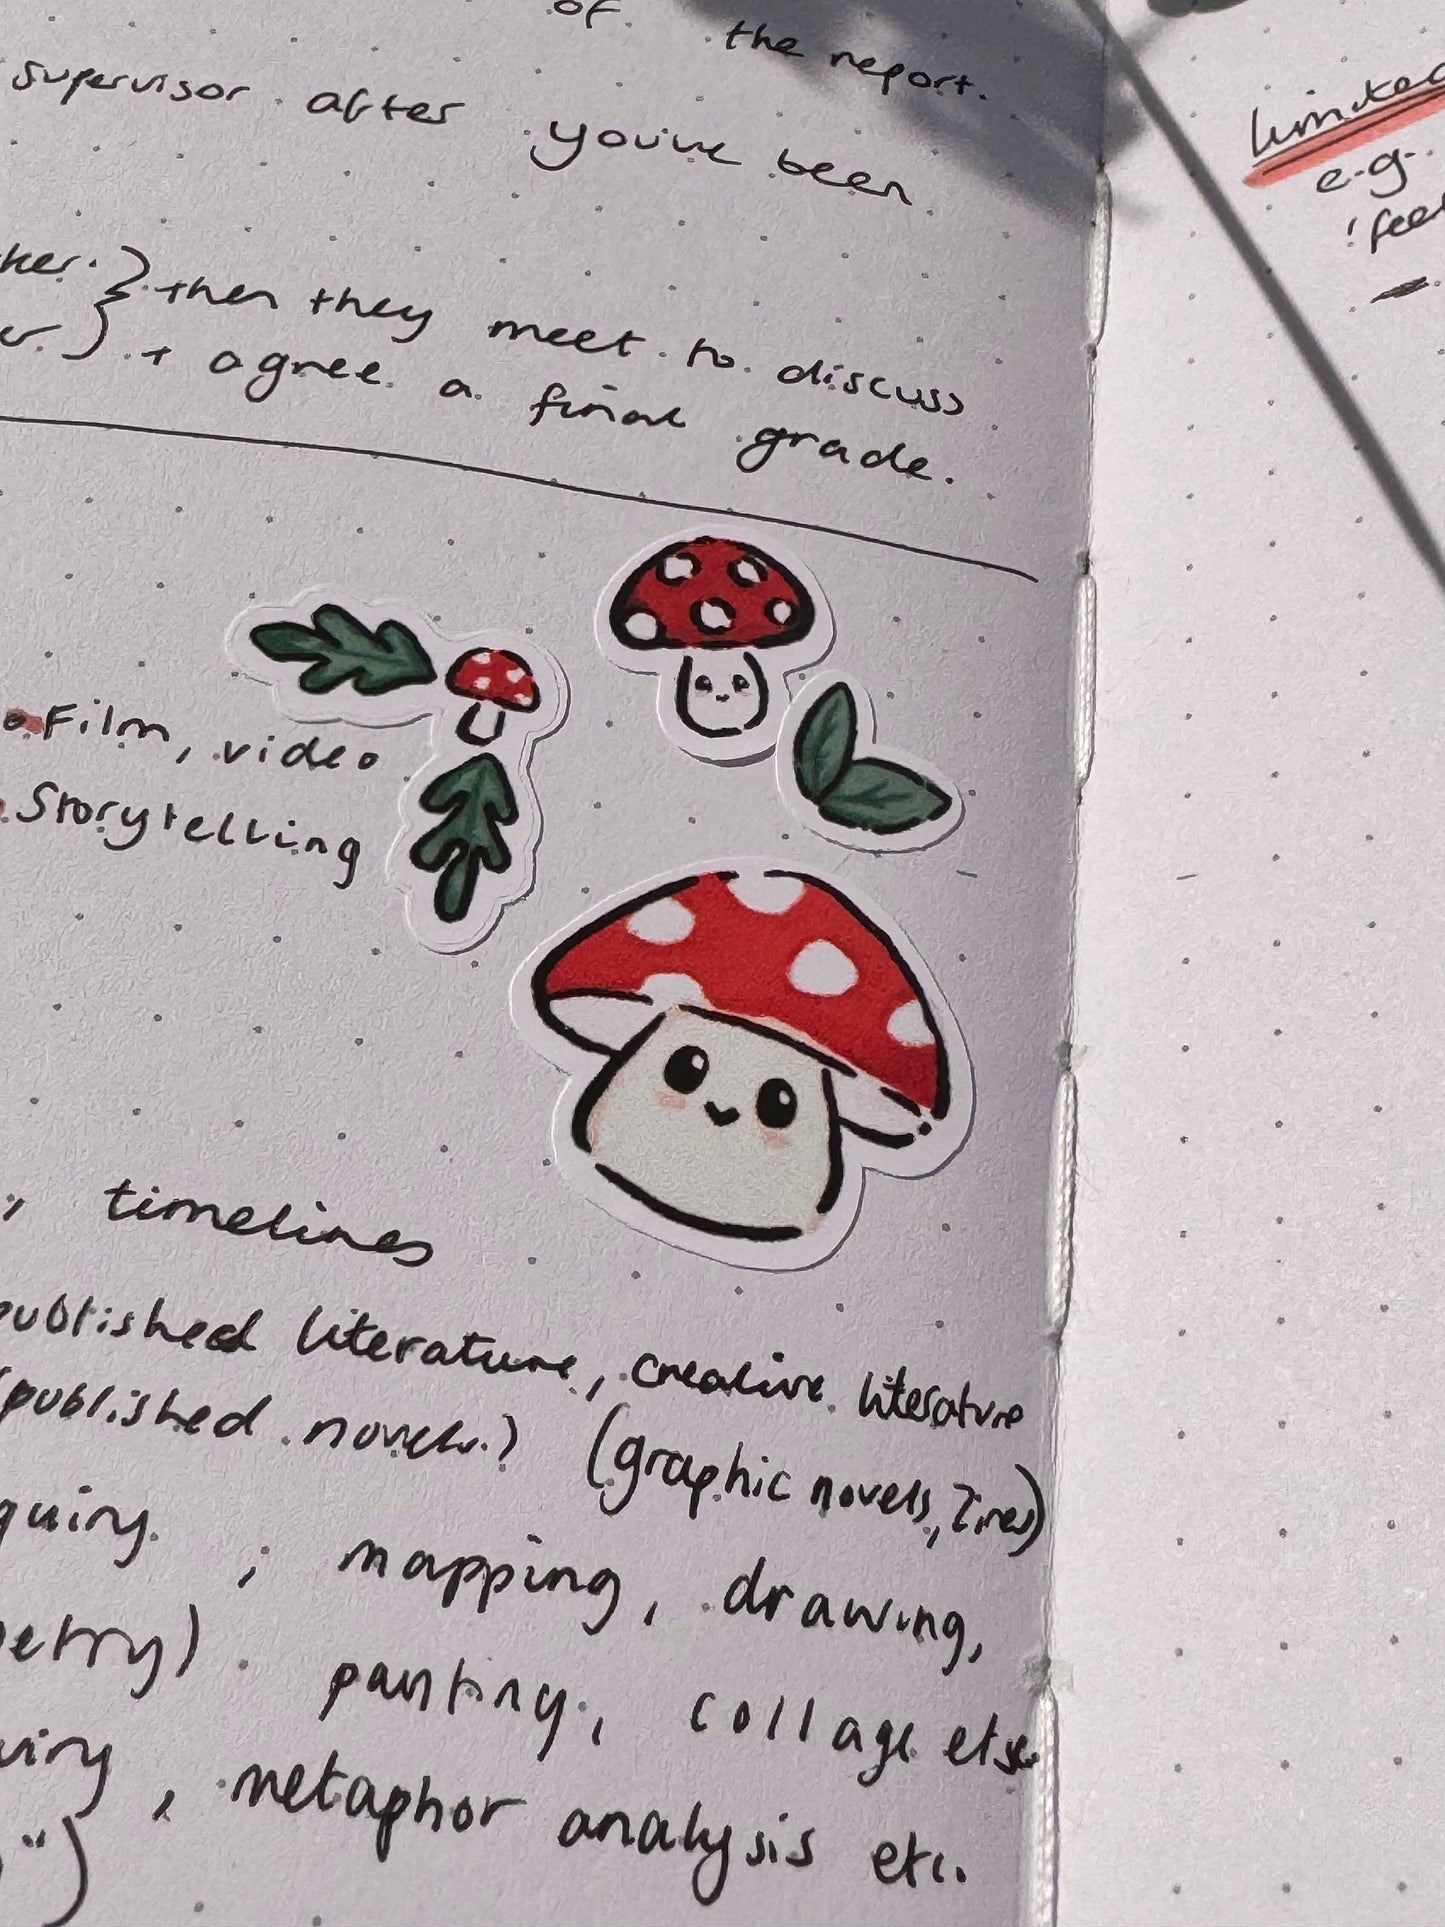 of the report.
supervisor after you've been
then they meet to discuss
+ agree a final grade.
Film, video
Storytelling
, timelines
published literature, creative literature
(published novels.) (graphic novels, zines)
; mapping, drawing,
painting, collage etc
, metaphor analysis etc.
")
limited
e.g.